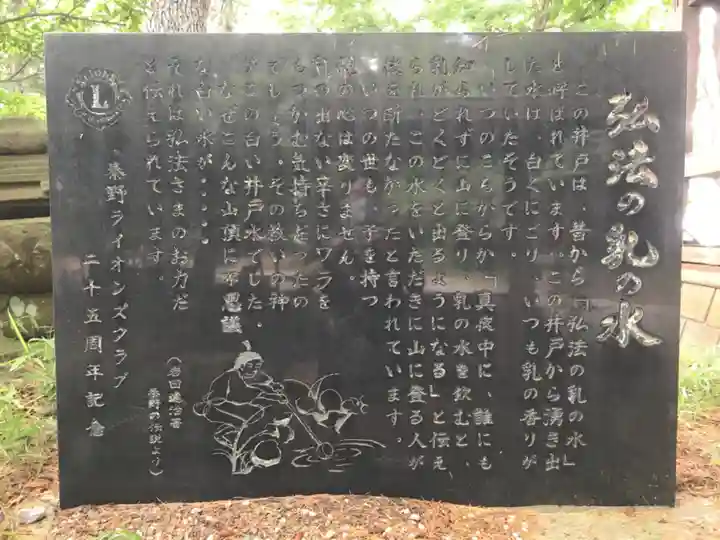 弘法の乳の水
この井戸は、昔から「弘法の乳の水」
と呼ばれています。この井戸から湧き出
た水は、白くにごり、いつも乳の香りが
していたそうです。
いつのころからか「真夜中に、誰にも
知られずに山に登り、乳の水を飲むと、
乳がどくどくと出るようになる」と伝え
られ、この水をいただきに山に登る人が
後を断たなかったと言われています。
いつの世も、子を持つ
親の心は変りません。
乳の出ない辛さにワラを
もつかむ気持ちだったの
でしょう。その救いの神
がこの白い井戸水でした。
なぜこんな山頂に不思議
な白い水が・・・・・
それは弘法さまのお力だ
と伝えられています。
(岩田達治著
秦野の伝説より)
秦野ライオンズクラブ
二十五周年記念
L